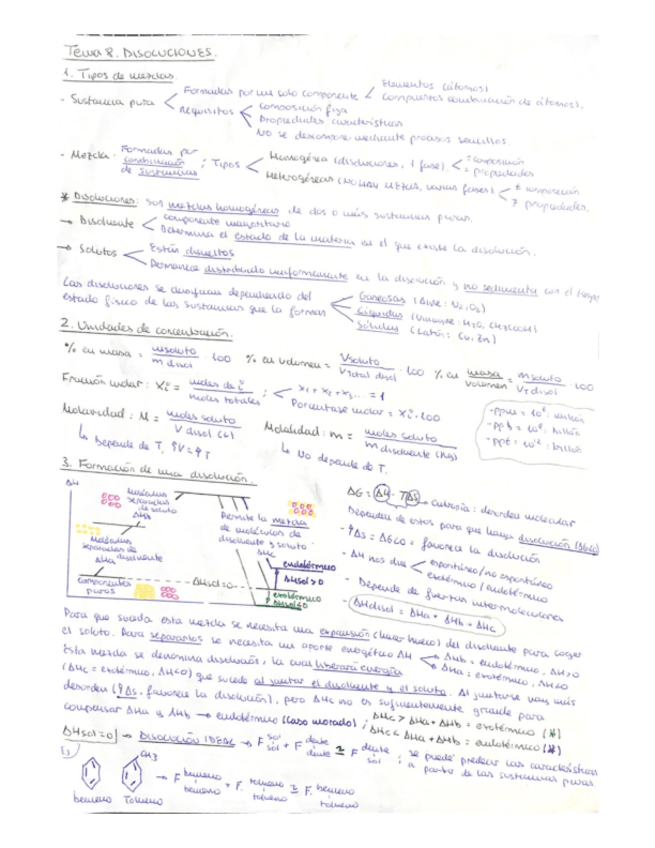 Tema 8. DISOLUCIONES.
1. Tipos de mezclas.
- Sustancia pura < Formadas por un solo componente < Elementos (átomos)
Compuestos (combinación de átomos).
Requisitos < Composición fija
Propiedades características
No se descompone mediante procesos sencillos.
- Mezcla: Formadas por combinación de sustancias ; Tipos < Homogénea (disoluciones, 1 fase) < = composición
= propiedades
Heterogéneas (varias fases) < ≠ composición
≠ propiedades.
* Disoluciones: son mezclas homogéneas de dos o más sustancias puras.
→ Disolvente < Componente mayoritario
Determina el estado de la materia en el que existe la disolución.
→ Solutos < Están disueltos
Permanece distribuido uniformemente en la disolución y no sedimenta con el tiempo
Las disoluciones se clasifican dependiendo del
estado físico de las sustancias que la forman < Gaseosas (Aire: N2, O2)
Líquidas (Vinagre: H2O, CH3COOH)
Sólidas (Latón: Cu, Zn)
2. Unidades de concentración.
% en masa = m soluto / m disol · 100 % en volumen = V soluto / V total disol · 100 % en masa/volumen = m soluto / VT disol · 100
Fracción molar: Xi = moles de i / moles totales ; < x1 + x2 + x3... = 1
Porcentaje molar = Xi · 100
Molaridad: M = moles soluto / V disol (L) Molalidad: m = moles soluto / m disolvente (kg)
↳ Depende de T, ↑V = ↑T ↳ No depende de T.
3. Formación de una disolución.
ΔH
moléculas separadas de soluto
ΔHb
Moléculas separadas de disolvente
ΔHa
componentes puros
Permite la mezcla de moléculas de disolvente y soluto
ΔHc
ΔHsol=0
endotérmico
ΔHsol>0
exotérmico
ΔHsol<0
ΔG = ΔH - TΔS → Entropía: desorden molecular
Dependen de estos para que haya disolución
- ↑ΔS = ΔG<0 = favorece la disolución
- ΔH nos dice < espontáneo/no espontáneo
exotérmico/endotérmico
- Depende de fuerzas intermoleculares
- ΔHdisol = ΔHa + ΔHb + ΔHc
Para que suceda esta mezcla se necesita una expansión (hacer hueco) del disolvente para coger
el soluto. Para separarlos se necesita un aporte energético ΔH < ΔHb = endotérmico, ΔH>0
Esta mezcla se denomina disolución, la cual liberará energía
(ΔHc = exotérmico, ΔH<0) que sucede al juntar el disolvente y el soluto. Al juntarse van más
desorden (↑ΔS, favorece la disolución), pero ΔHc no es suficientemente grande para
compensar ΔHa y ΔHb → endotérmico (caso morado) ; ΔHc > ΔHa + ΔHb = exotérmico
ΔHc < ΔHa + ΔHb = endotérmico
ΔHsol=0 → DISOLUCIÓN IDEAL → F sol sol + F dvente dvente ≅ F dvente sol ; se puede predecir las características
a partir de las sustancias puras.
Ej
CH3
→ F benceno benceno + F. tolueno tolueno ≅ F. benceno tolueno
benceno Tolueno